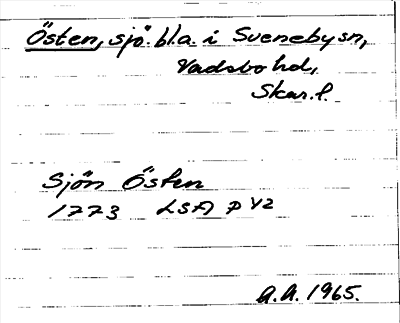 Östen, sjö. bl.a. i Sveneby sn,
Vadsbo hd,
Skar. l.
Sjön Östen
1773 LSA P 42
A.A. 1965.